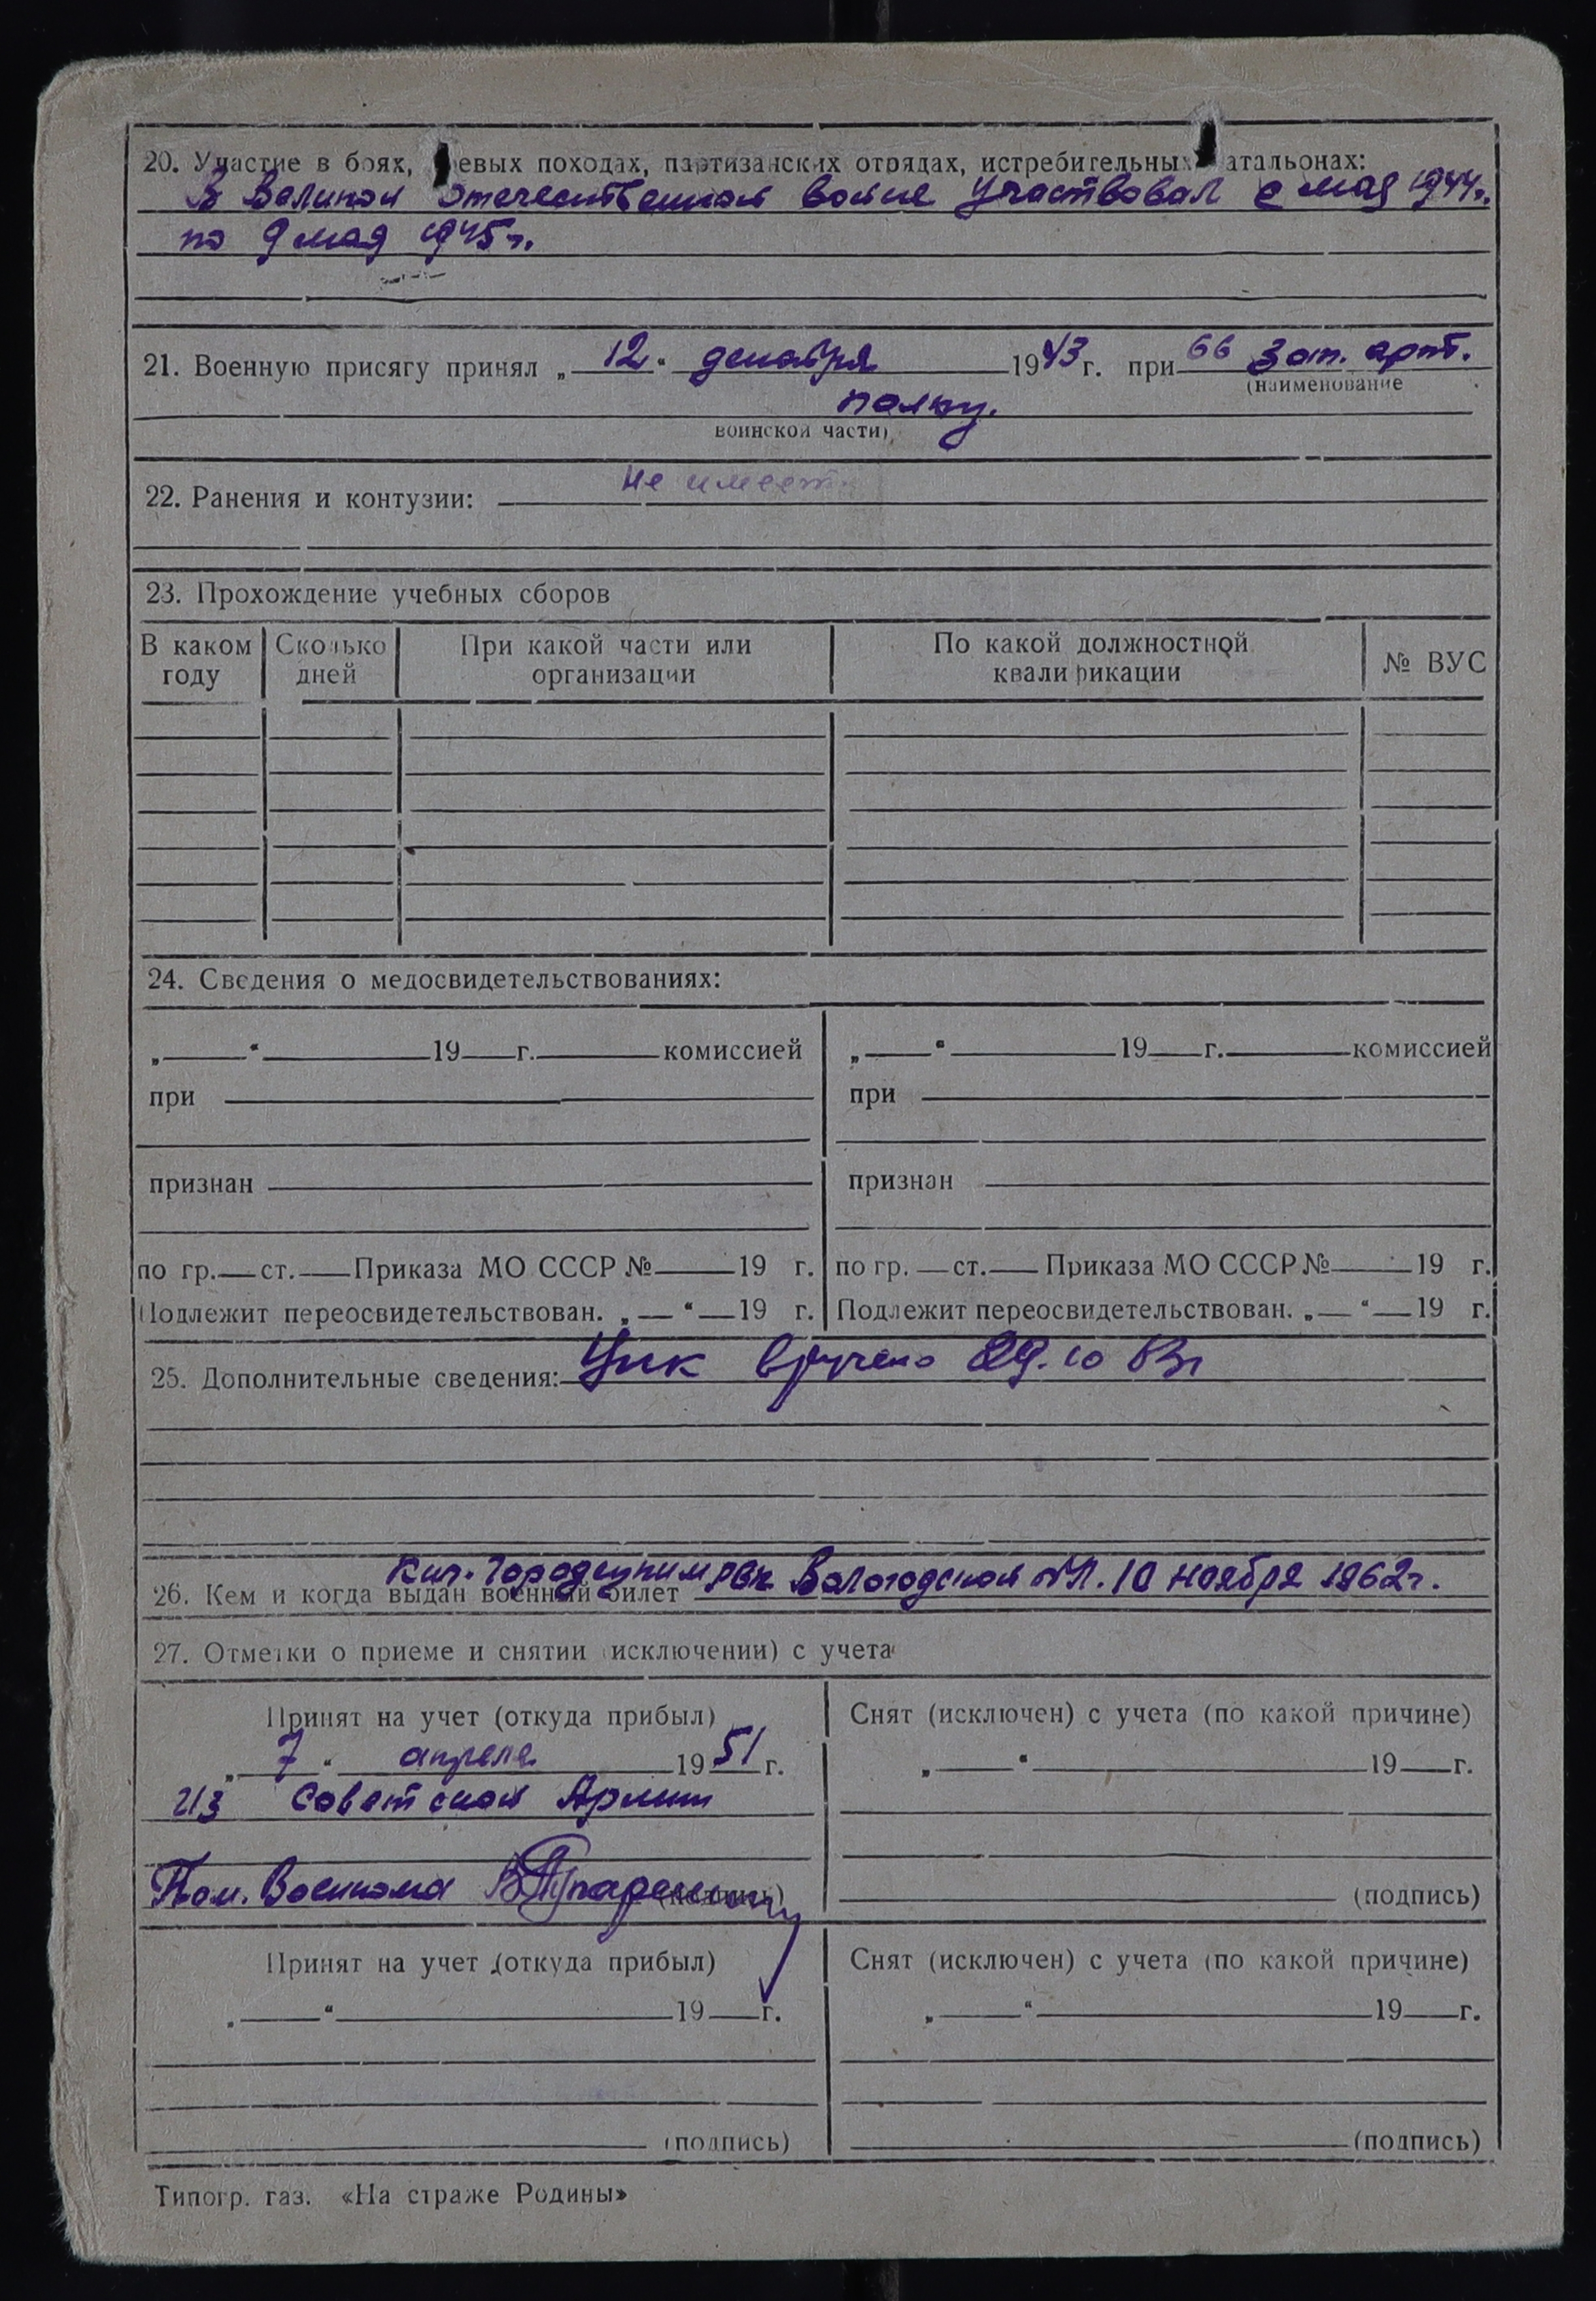 20. Участие в боях, евых походах, партизанских отрядах, истребительных атальонах:
В Великой Отечественной войне участвовал с мая 1944г.
по 9 мая 1945г.
21. Военную присягу принял „ 12 “ декабря 1943 г. при 66 Зап. арт.
(наименование
полку.
воинской части)
22. Ранения и контузии: Не имеет.
23. Прохождение учебных сборов
В каком году
Сколько дней
При какой части или организации
По какой должностной квалификации
№ ВУС
24. Сведения о медосвидетельствованиях:
„ “ 19 г. комиссией
при
признан
по гр. ст. Приказа МО СССР № 19 г.
Подлежит переосвидетельствован. „ “ 19 г.
„ “ 19 г. комиссией
при
признан
по гр. ст. Приказа МО СССР № 19 г.
Подлежит переосвидетельствован. „ “ 19 г.
25. Дополнительные сведения: вручено 29.10
Кич.-Городецким РВК Вологодской обл. 10 ноября 1962г.
26. Кем и когда выдан военный билет
27. Отметки о приеме и снятии (исключении) с учета
Принят на учет (откуда прибыл)
„ 7 “ апреля 1951 г.
из Советской Армии
Пом. Военкома (подпись)
Снят (исключен) с учета (по какой причине)
„ “ 19 г.
(подпись)
Принят на учет (откуда прибыл)
„ “ 19 г.
(подпись)
Снят (исключен) с учета (по какой причине)
„ “ 19 г.
(подпись)
Типогр. газ. «На страже Родины»